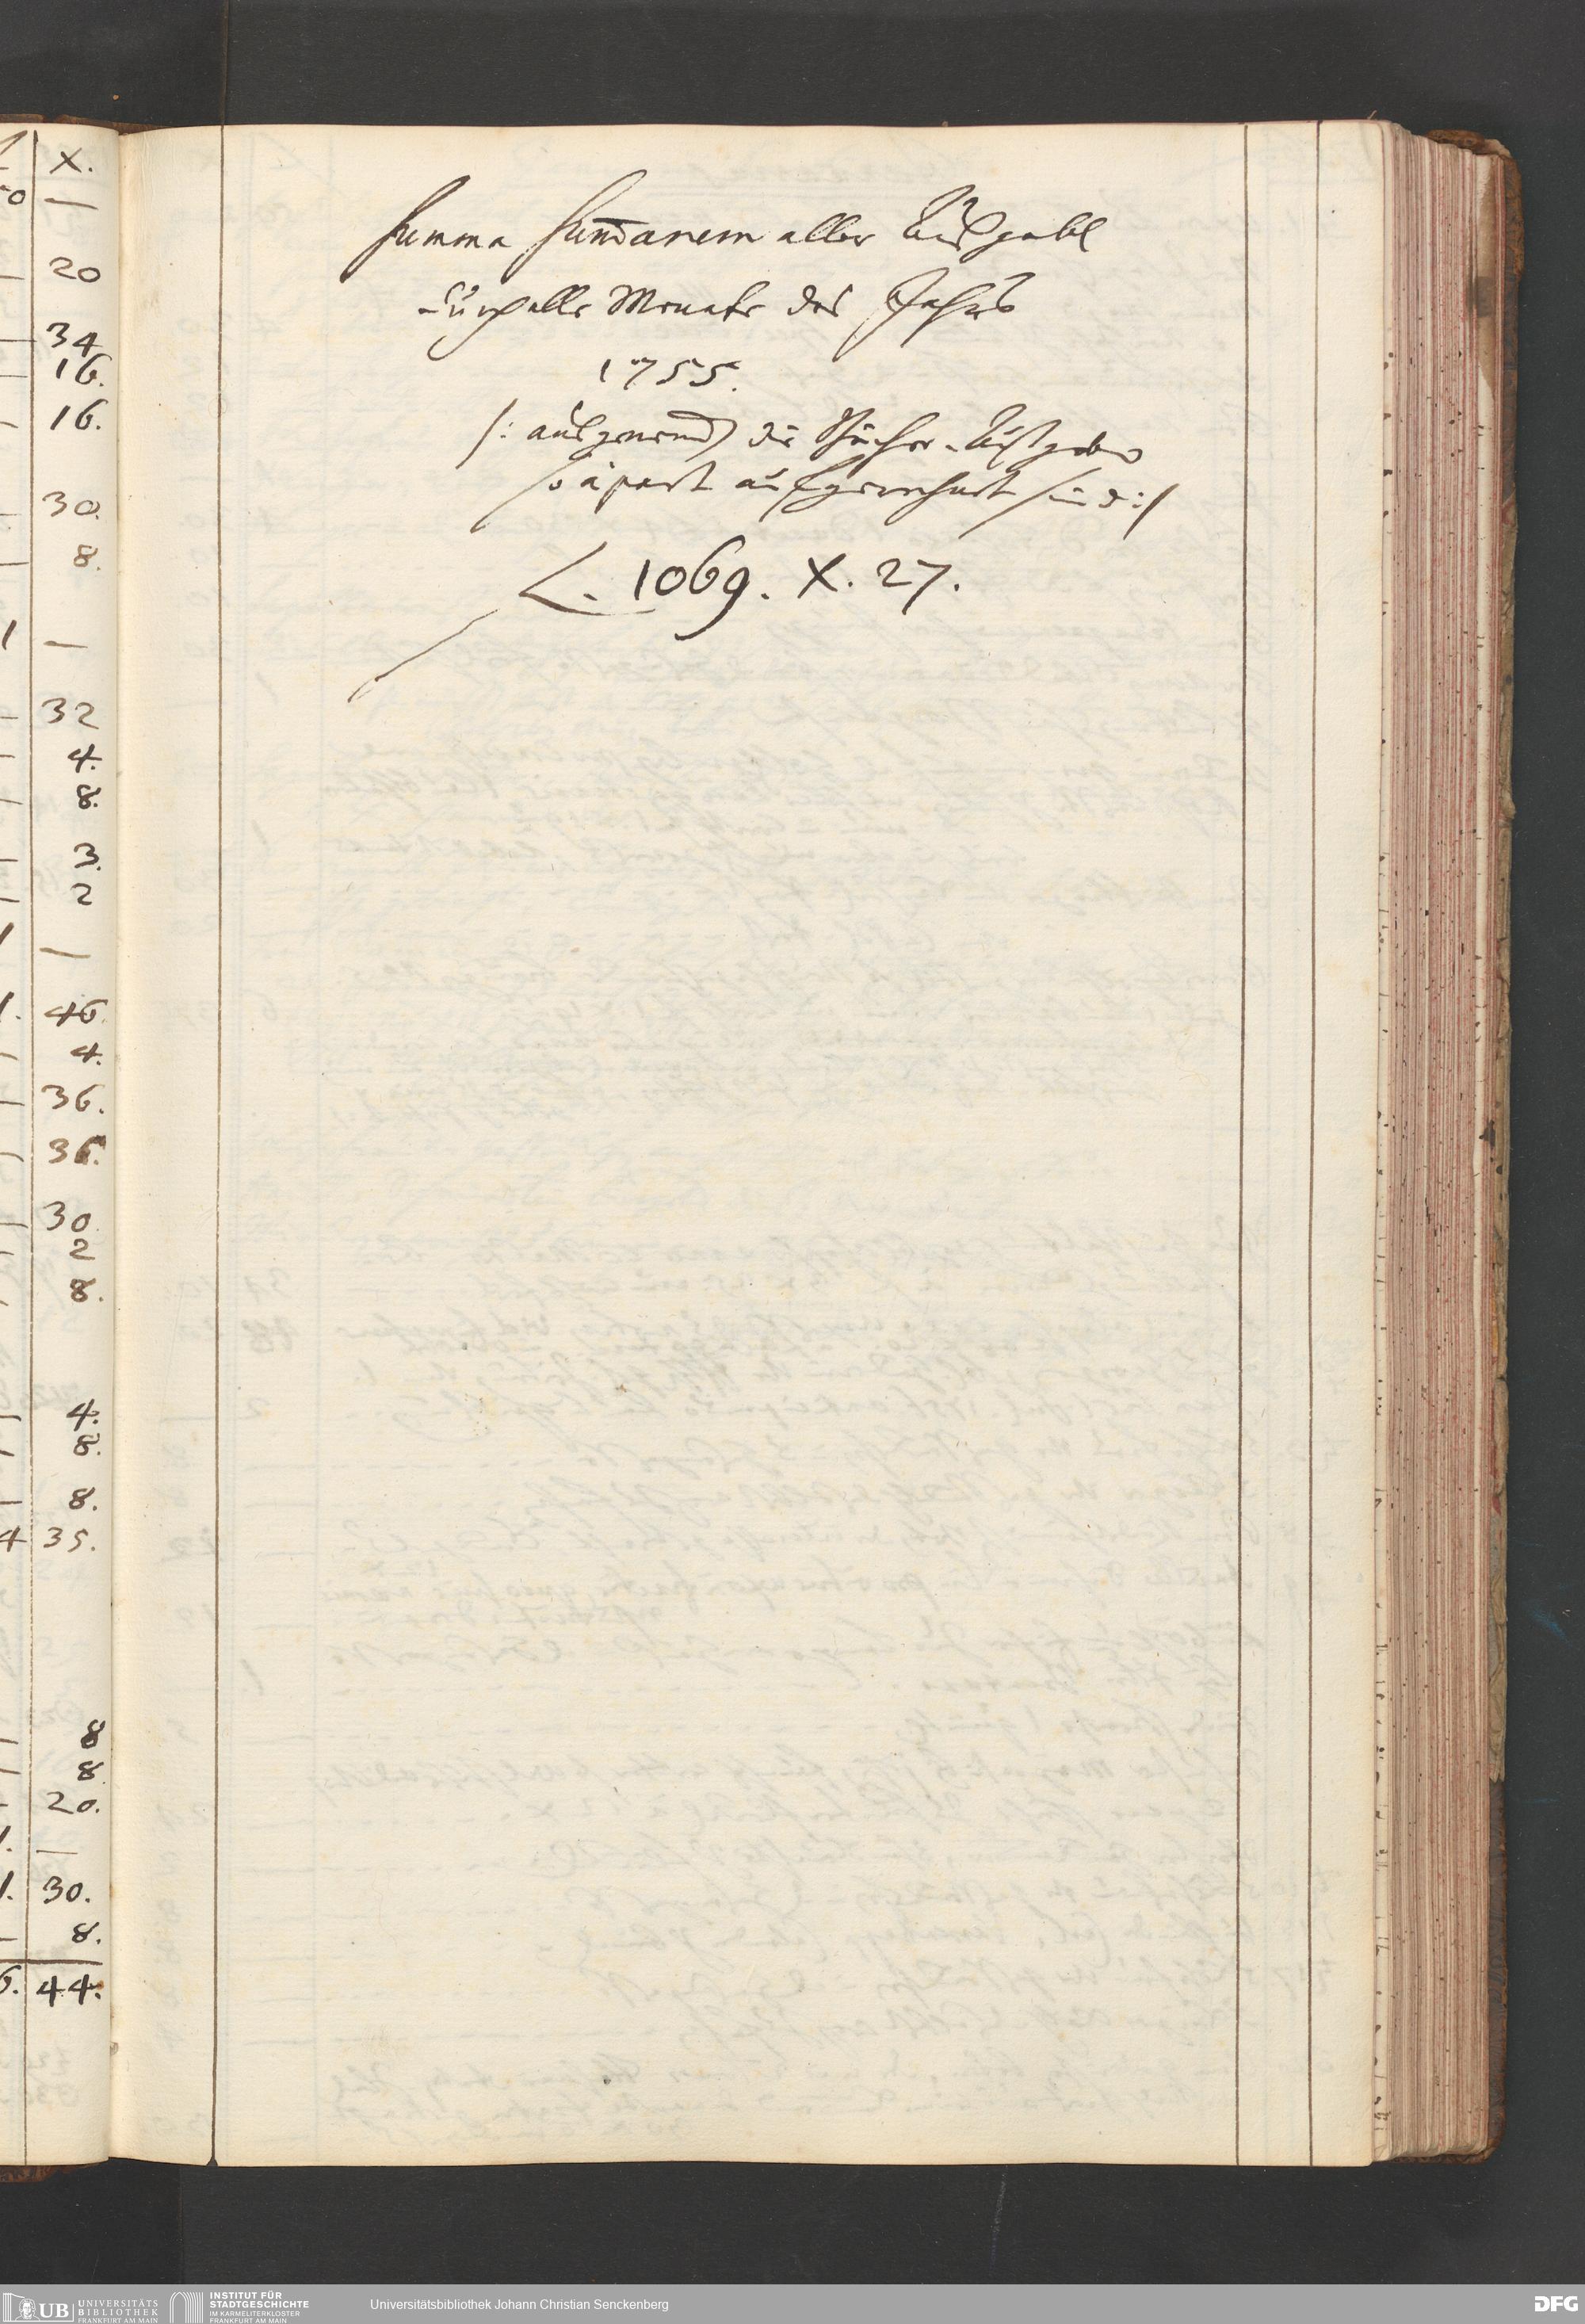 X.
—
20
34
16.
16.
30.
8.
1 —
32
4.
8.
3.
2
—
1. 46
4.
36.
36.
30
2
8.
4.
8.
8.
4 35.
8
8
20.
1. —
1. 30.
8.
6. 44.
Summa Sum̄arum aller Außgabe
durch alle Monate des Jahrs
1755.
/: außgenom̄en die Bücher-Außgabe
so àpart aufgerechnet sind :/
L. 1069. X. 27.
UB UNIVERSITÄTS
BIBLIOTHEK
FRANKFURT AM MAIN
INSTITUT FÜR
STADTGESCHICHTE
IM KARMELITERKLOSTER
FRANKFURT AM MAIN
Universitätsbibliothek Johann Christian Senckenberg
DFG